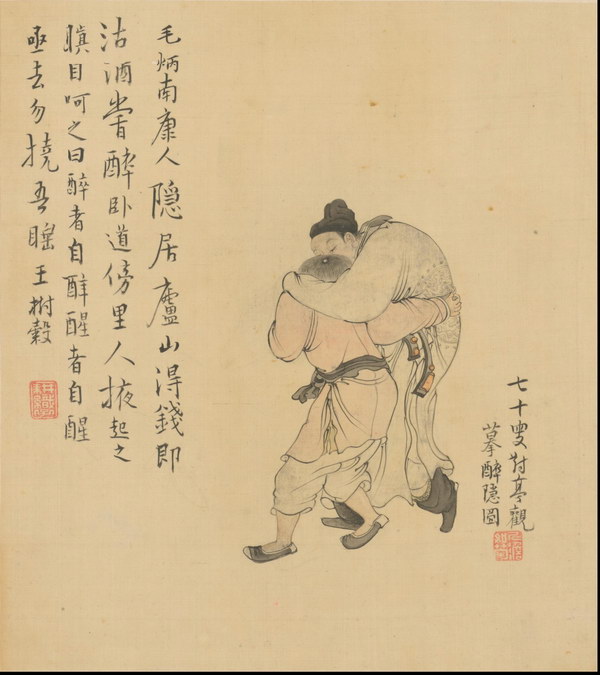 毛炳南康人隠居廬山得錢即
沽酒嘗醉卧道傍里人掖起之
瞋目呵之曰醉者自醉醒者自醒
亟去勿撓吾睡王樹穀
七十叟對亭觀
摹醉隠圖